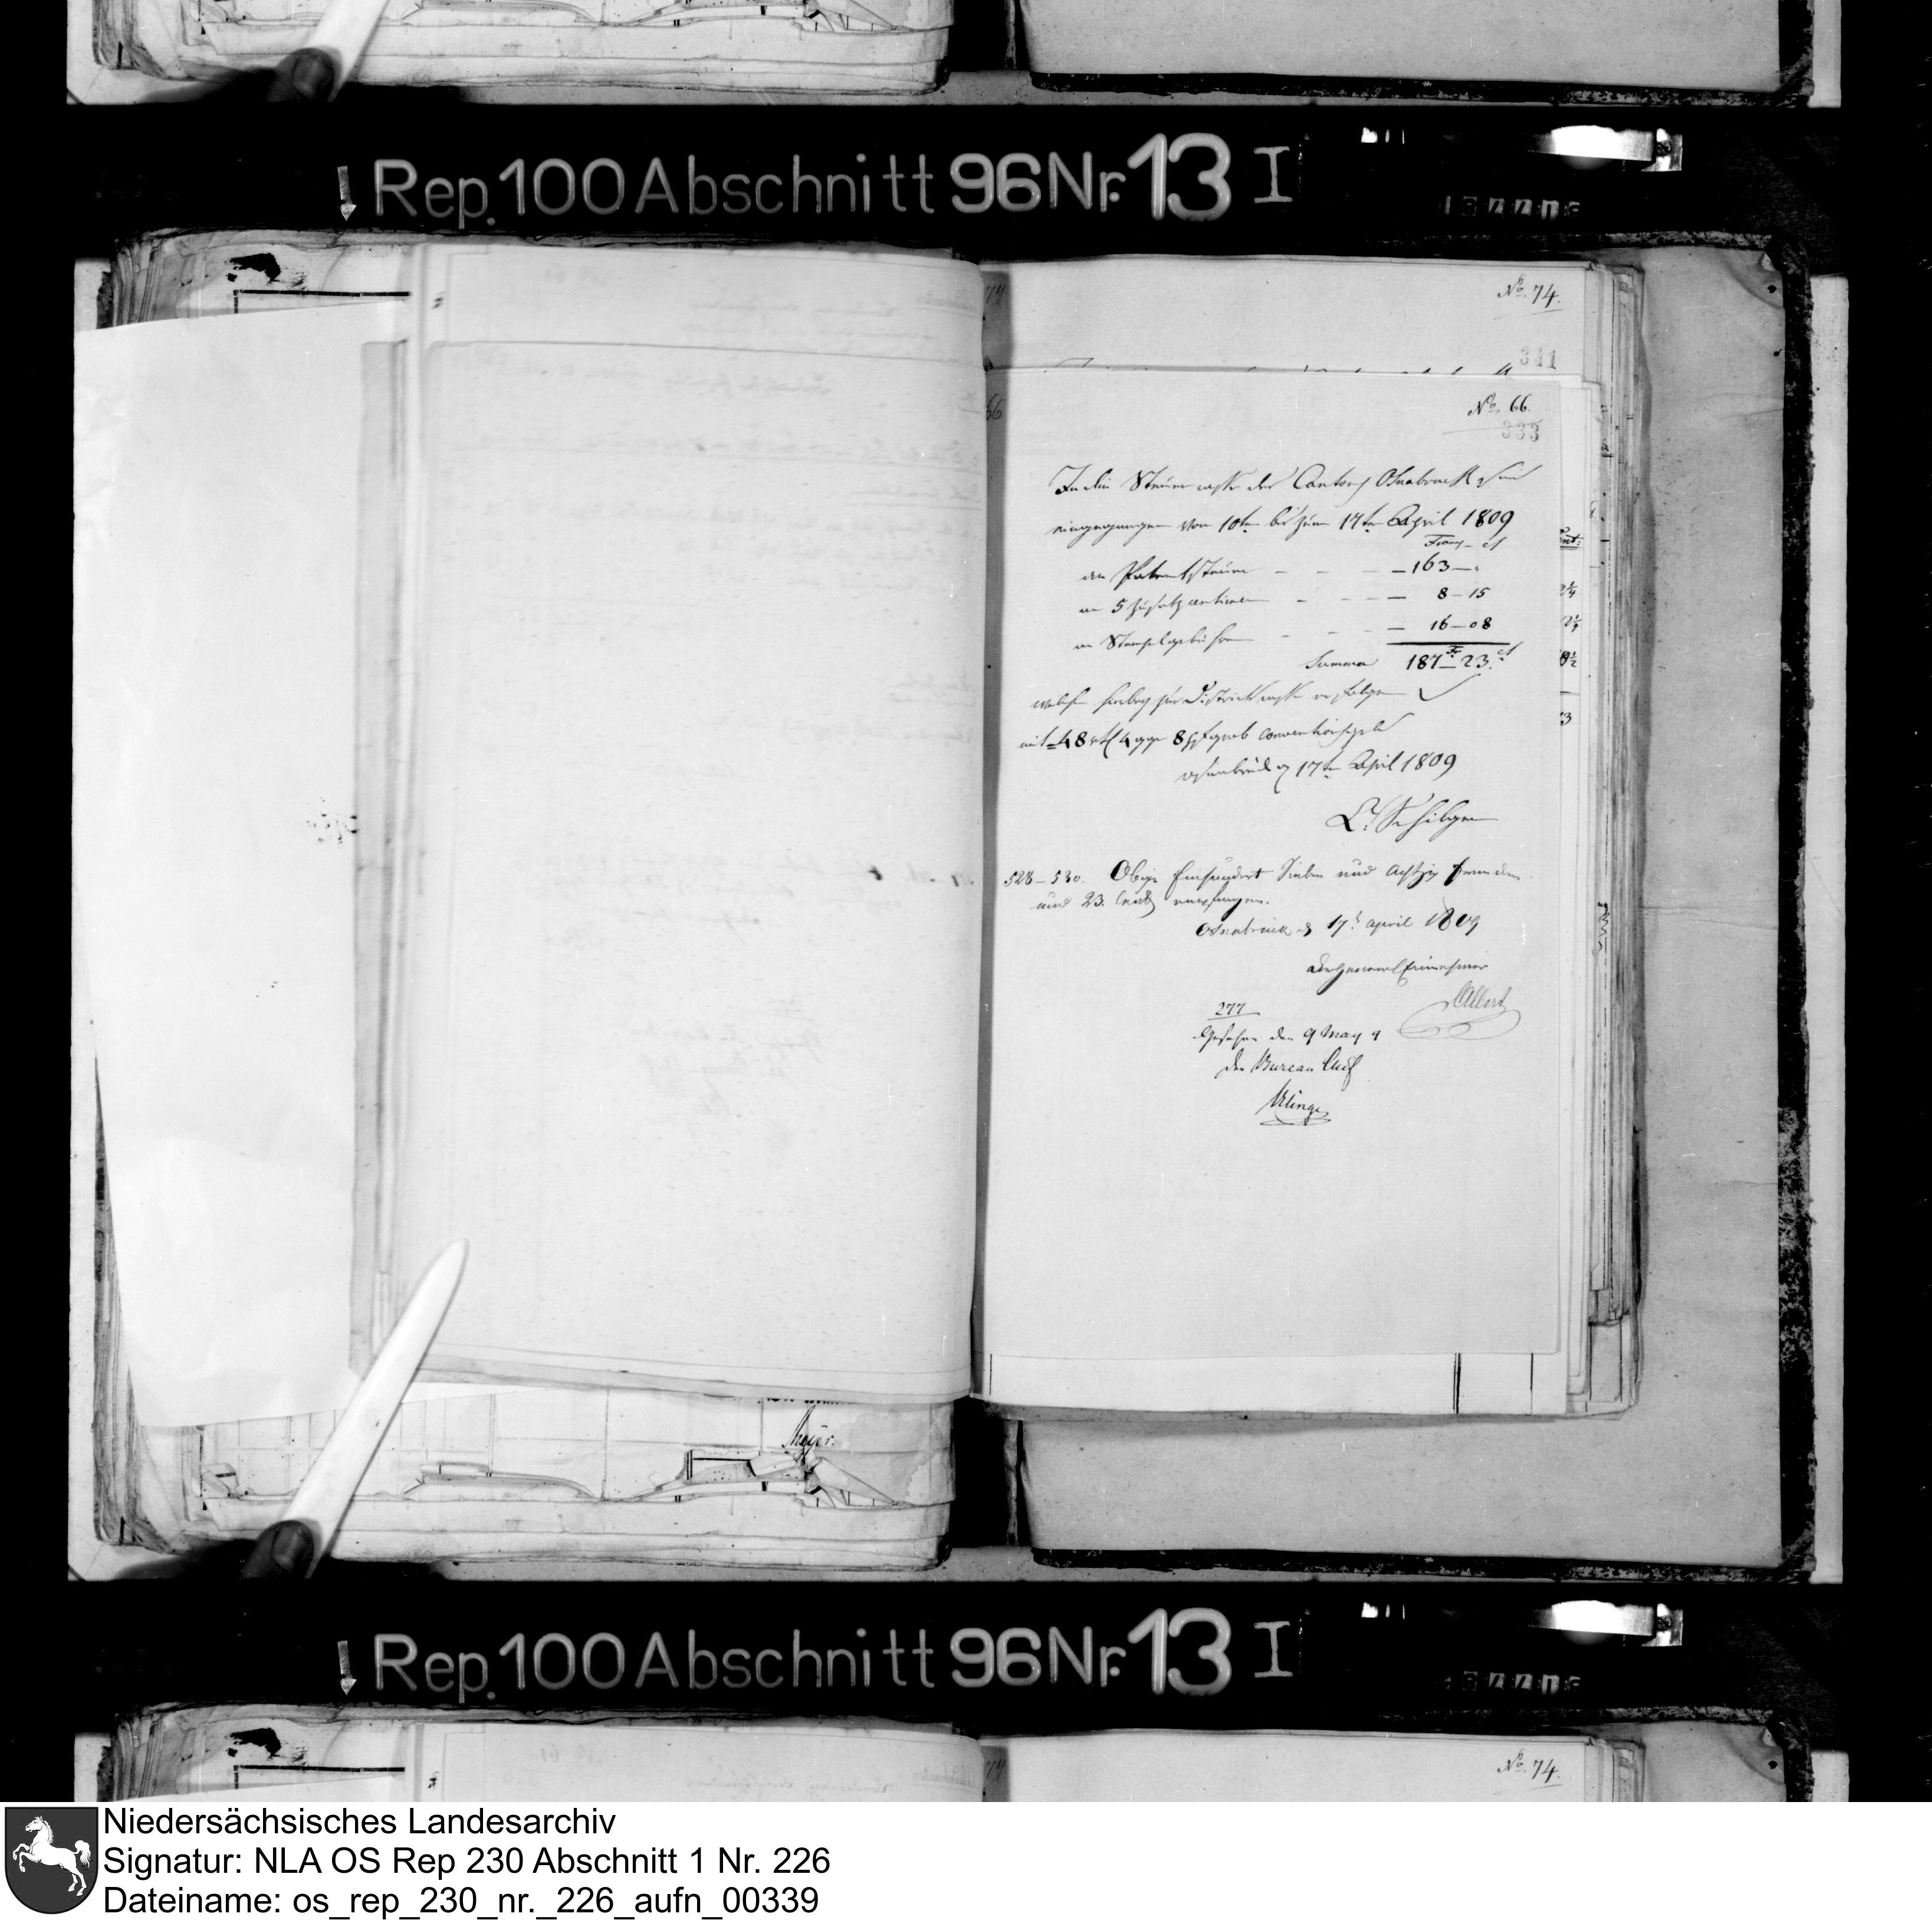 Rep. 100 Abschnitt 96 Nr. 13 I
No. 74.
341
No. 66.
333
In die Steuer casse des Cantons Osnabruck sind
eingegangen vom 10ten bis zum 17ten April 1809
Francs – ct
an Patentsteuer – – – 163 – "
an 5 Zusatzcentimen – – – 8 – 15
an Stempelgebühren – – – 16 – 08
Summa 187 Fr – 23 ct
welche hierbey zur Districtscasse erfolgen
mit 48 rtl 4 ggr 8 Pf grob Conventionsgeld
Osnabrück d 17ten April 1809
Schilgen
528–530. Obige Einhundert Sieben und Achtzig Francken
und 23. Cent empfangen.
Osnabrück d 17t april 1809
Der General Einnehmer
Albert
277
Gesehen den 9 May 9
Der Bureau Chef
Klinge
Meyer.
Rep. 100 Abschnitt 96 Nr. 13 I
No. 74.
Niedersächsisches Landesarchiv
Signatur: NLA OS Rep 230 Abschnitt 1 Nr. 226
Dateiname: os_rep_230_nr._226_aufn_00339